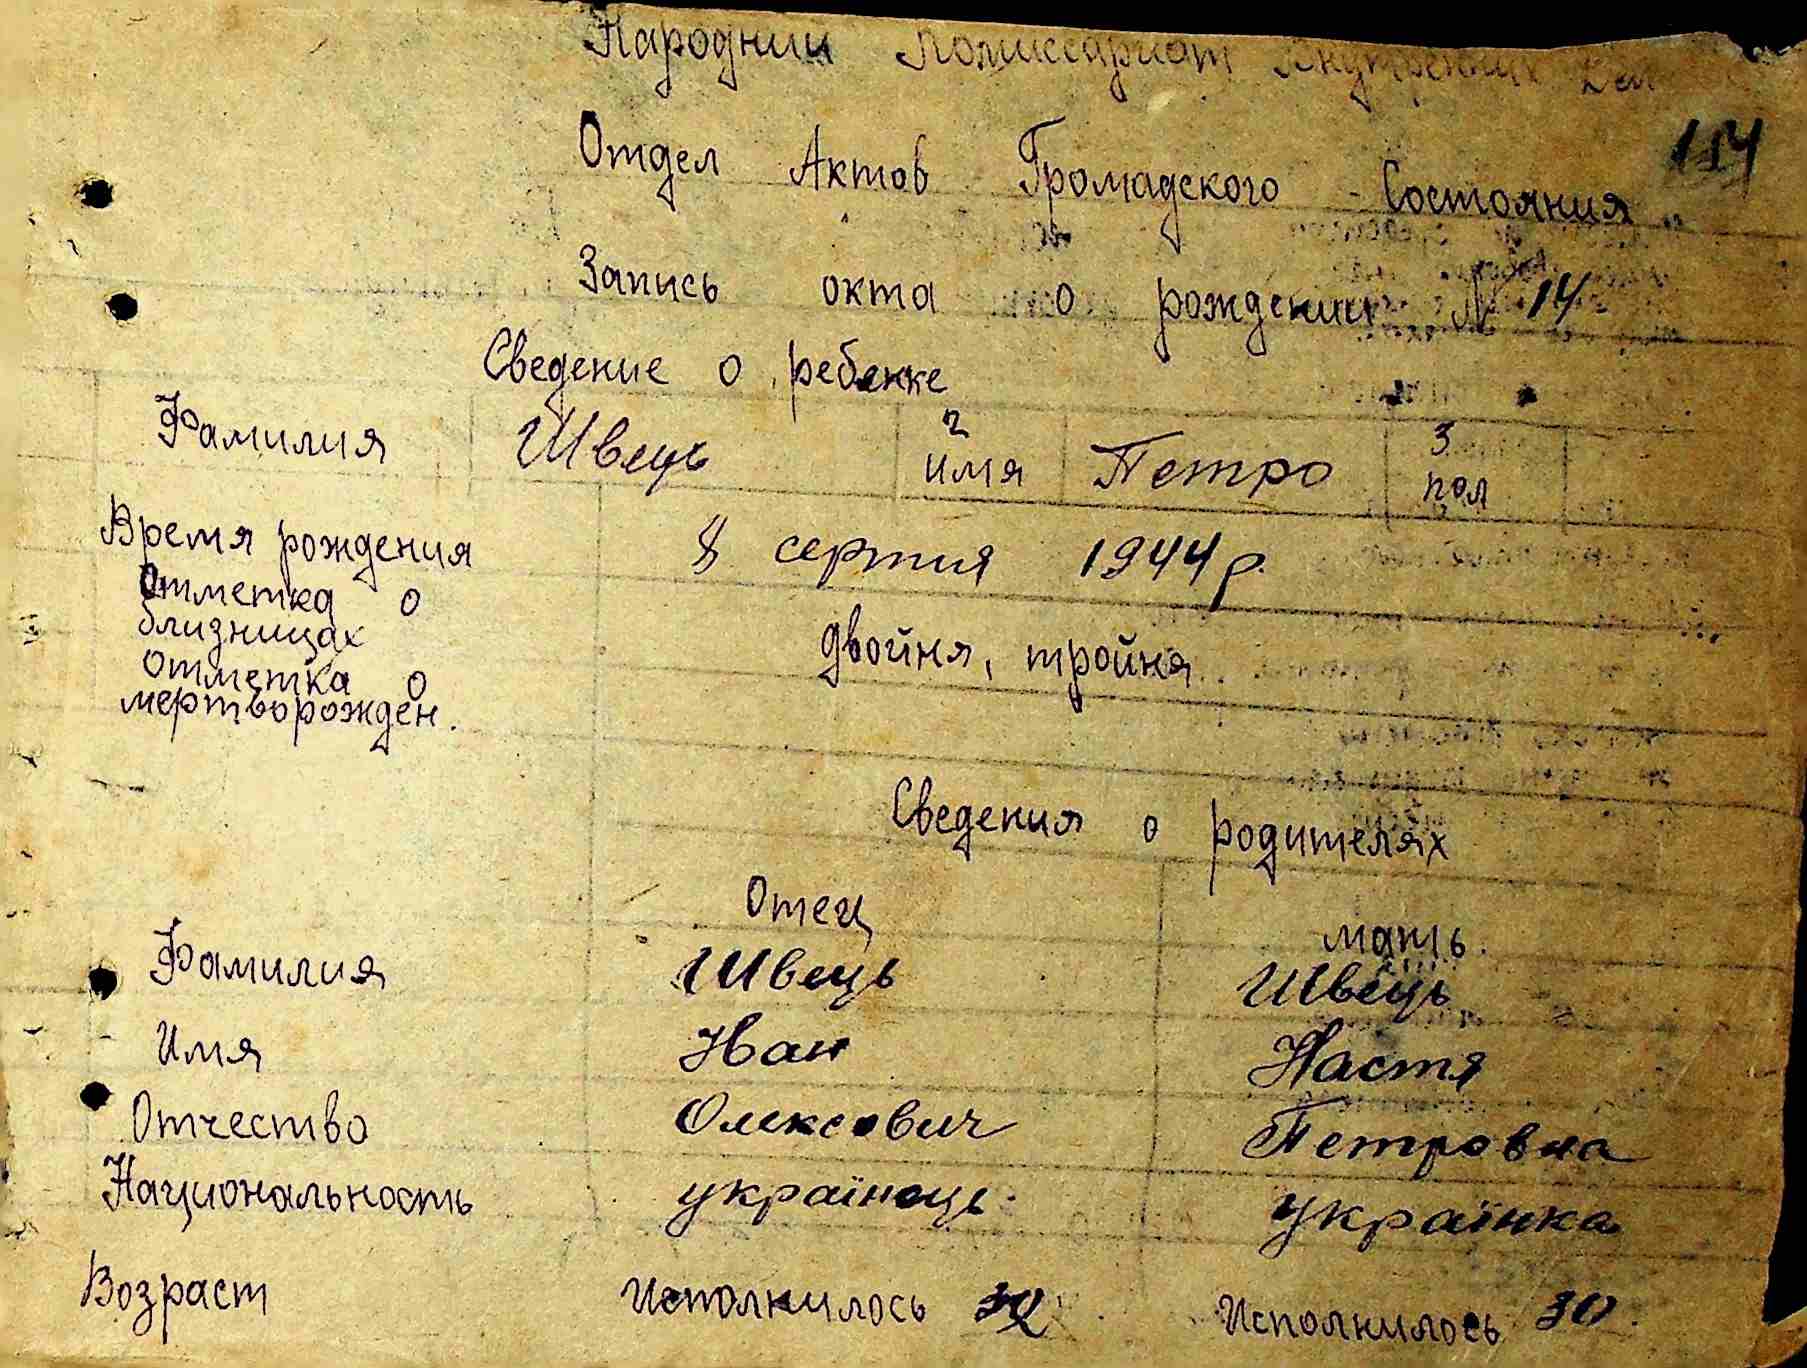 Народний Комиссариат Внутренних Дел
114
Отдел Актов Громадского Состояния
Запись окта о рождении № 14
Сведение о ребенке
Фамилия Швець 2 имя Петро 3 пол
Время рождения 8 серпня 1944 р.
Отметка о близницах двойня, тройня
Отметка о мертворожден.
Сведения о родителях
Отец мать
Фамилия Швець Швець
Имя Іван Настя
Отчество Олексович Петровна
Национальность українець українка
Возраст Исполнилось Исполнилось 30